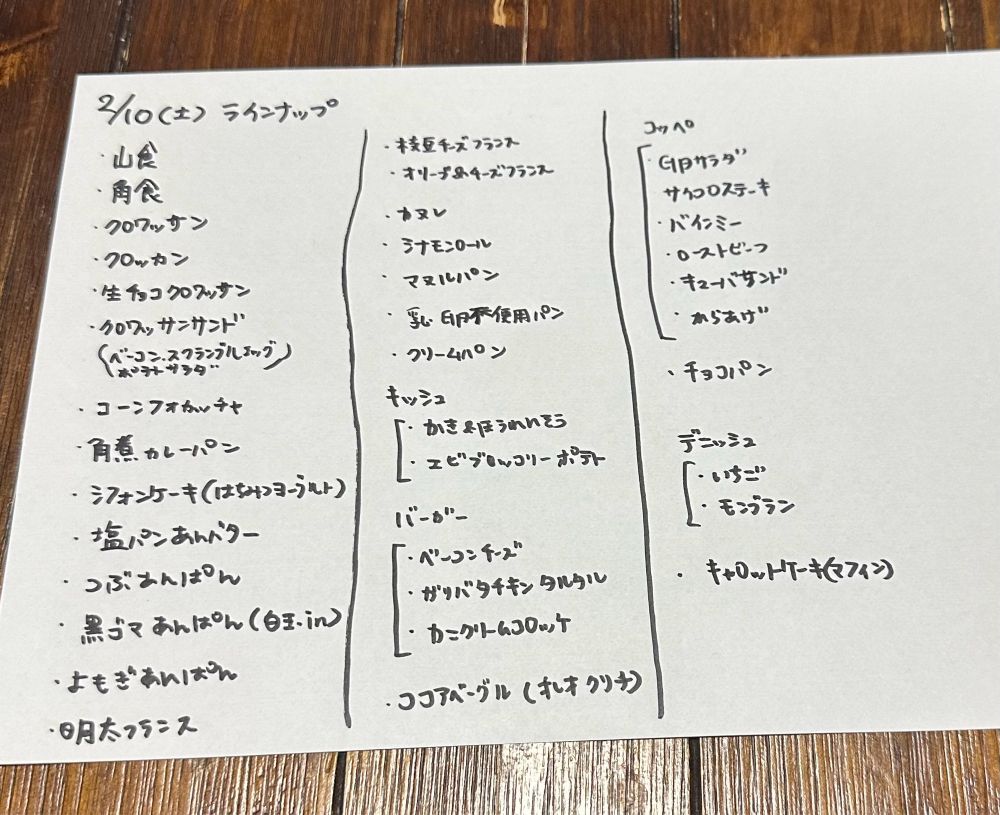 2/10(土) ラインナップ
・山食
・角食
・クロワッサン
・クロッカン
・生チョコクロワッサン
・クロワッサンサンド
(ベーコン.スクランブルエッグ
ポテトサラダ)
・コーンフォカッチャ
・角煮カレーパン
・シフォンケーキ(はちみつヨーグルト)
・塩パンあんバター
・つぶあんぱん
・黒ゴマあんぱん(白玉.in)
・よもぎあんぱん
・明太フランス
・枝豆チーズフランス
・オリーブ&チーズフランス
・カヌレ
・シナモンロール
・マヌルパン
・乳.卵不使用パン
・クリームパン
キッシュ
・かき&ほうれいそう
・エビブロッコリーポテト
バーガー
・ベーコンチーズ
・ガリバタチキンタルタル
・カニクリームコロッケ
・ココアベーグル(オレオクリチ)
コッペ
・卵サラダ
サイコロステーキ
・バインミー
・ローストビーフ
・キューバサンド
・からあげ
・チョコパン
デニッシュ
・いちご
・モンブラン
・キャロットケーキ(マフィン)